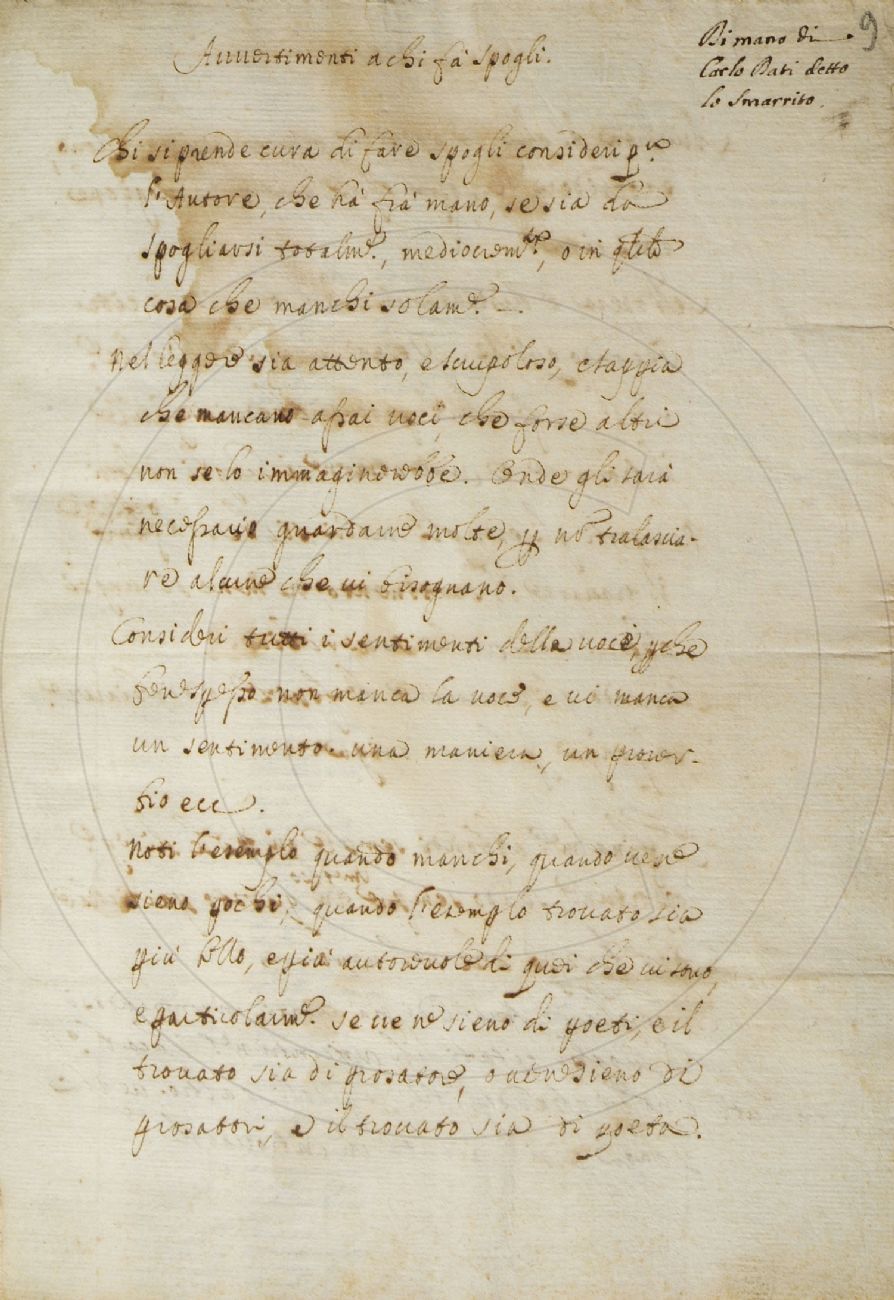 9
Di mano di
Carlo Dati detto
lo Smarrito.
Avvertimenti a chi fà spogli.
Chi si prende cura di fare spogli consideri p.ª
l'Autore, che hà frà mano, se sia da
spogliarsi totalm.e, mediocrem.te, o in qlche
cosa che manchi solam.e
Nel leggere sia attento, e scrupoloso, e sappia
che mancano assai voci, che forse altri
non se lo immaginerebbe. Onde gli sarà
necessario guardarne molte, p nō tralascia-
re alcune che vi bisognano.
Consideri tutti i sentimenti delle voci, pche
bene spesso non manca la voce, e vi manca
un sentimento. una maniera, un prover-
bio ecc.
Noti l'esemplo quando manchi, quando ve ne
sieno pochi, quando l'esemplo trovato sia
più bello, e più autorevole di quei che vi sono,
e particolarm.e se ve ne sieno di poeti, e il
trovato sia di prosatore, o ve ne sieno di
prosatori, e il trovato sia di poeta.